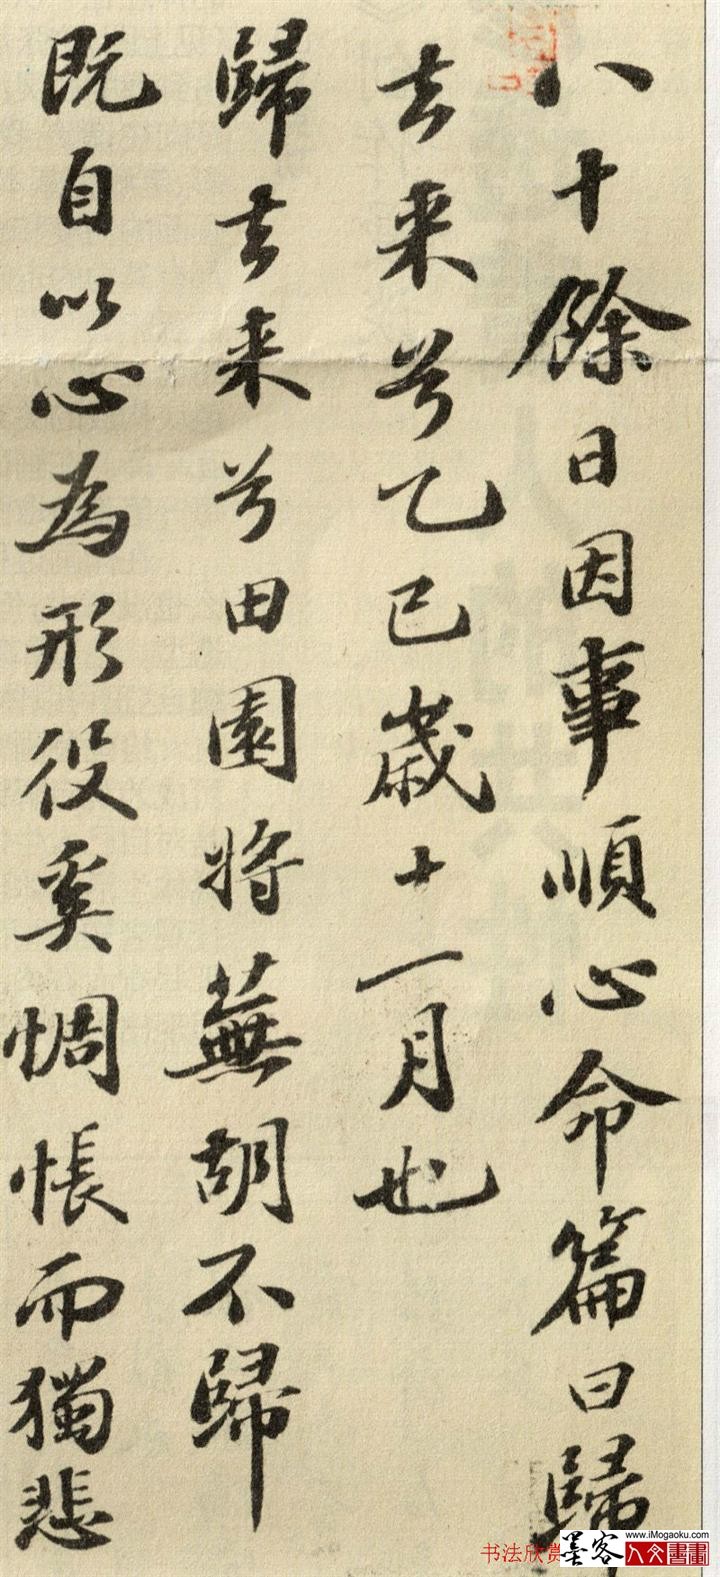 八十餘日因事順心命篇曰歸
去来兮乙巳歳十一月也
歸去来兮田園将蕪胡不歸
既自以心為形役奚惆悵而獨悲
书法欣赏
墨客
www.iMogaoku.com
人文書畫